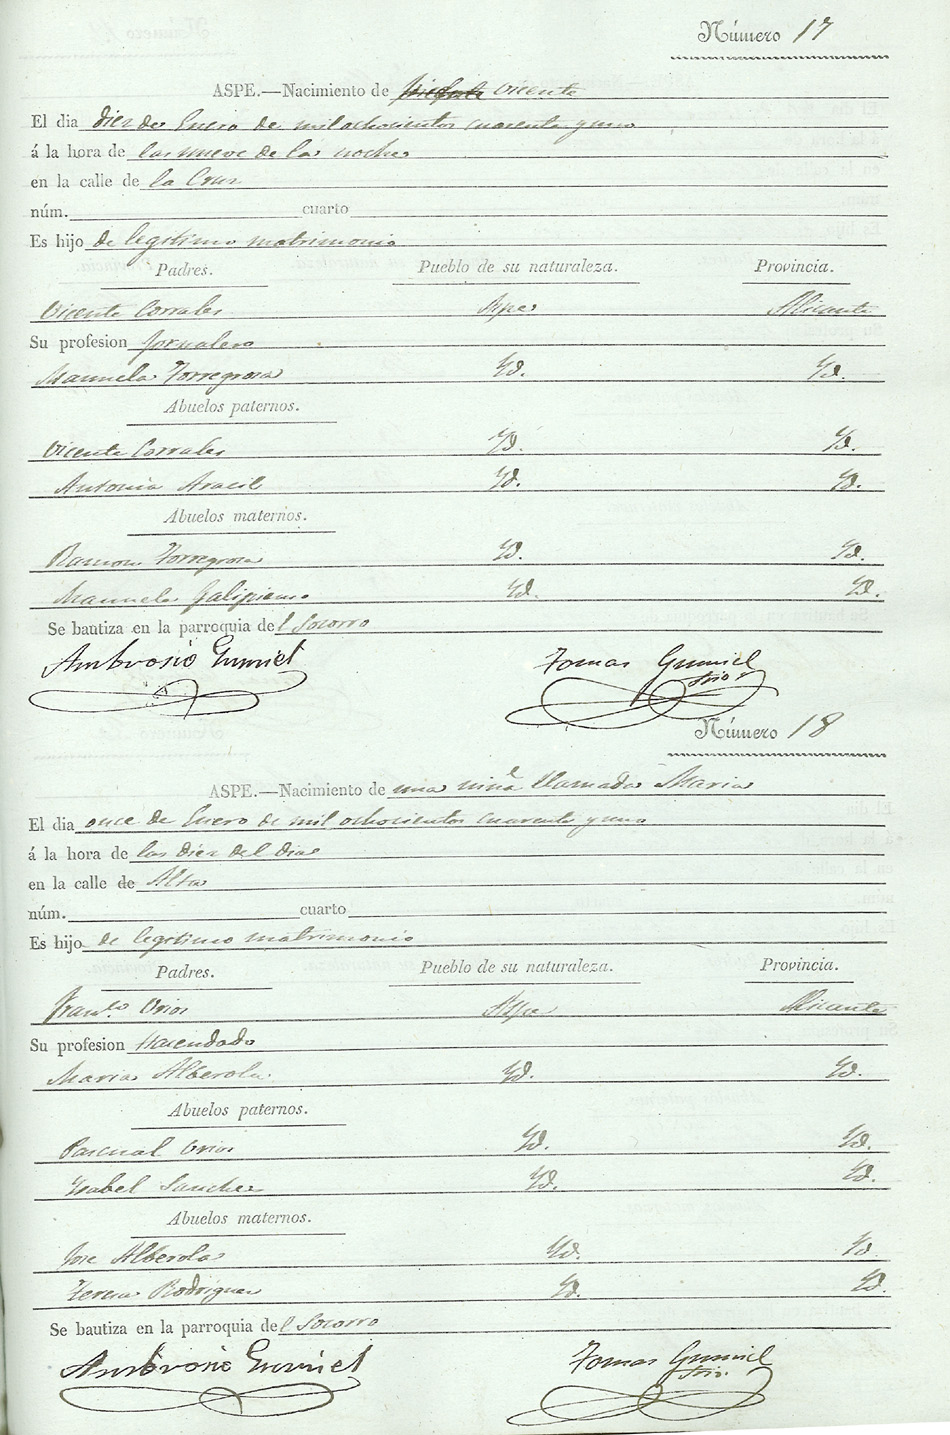 Número 17
ASPE.—Nacimiento de Vicente
El dia diez de Enero de mil ochocientos cuarenta y uno
á la hora de las nueve de la noche
en la calle de la Cruz
núm. cuarto
Es hijo de legitimo matrimonio
Padres. Pueblo de su naturaleza. Provincia.
Vicente Corrales Aspe Alicante
Su profesion jornalero
Manuela Torregrosa Yd. Yd.
Abuelos paternos.
Vicente Corrales Yd. Yd.
Antonia Aracil Yd. Yd.
Abuelos maternos.
Ramon Torregrosa Yd. Yd.
Manuela Galipienso Yd. Yd.
Se bautiza en la parroquia del Socorro
Ambrosio Gumiel Tomas Gumiel
Srio
Número 18
ASPE.—Nacimiento de una niña llamada Maria
El dia once de Enero de mil ochocientos cuarenta y uno
á la hora de las diez del dia
en la calle de Alta
núm. cuarto
Es hijo de legitimo matrimonio
Padres. Pueblo de su naturaleza. Provincia.
Franco. Aspe Alicante
Su profesion Hacendado
Maria Alberola Yd. Yd.
Abuelos paternos.
Pascual Yd. Yd.
Ysabel Sanchez Yd. Yd.
Abuelos maternos.
Jose Alberola Yd. Yd.
Teresa Rodriguez Yd. Yd.
Se bautiza en la parroquia del Socorro
Ambrosio Gumiel Tomas Gumiel
Srio.